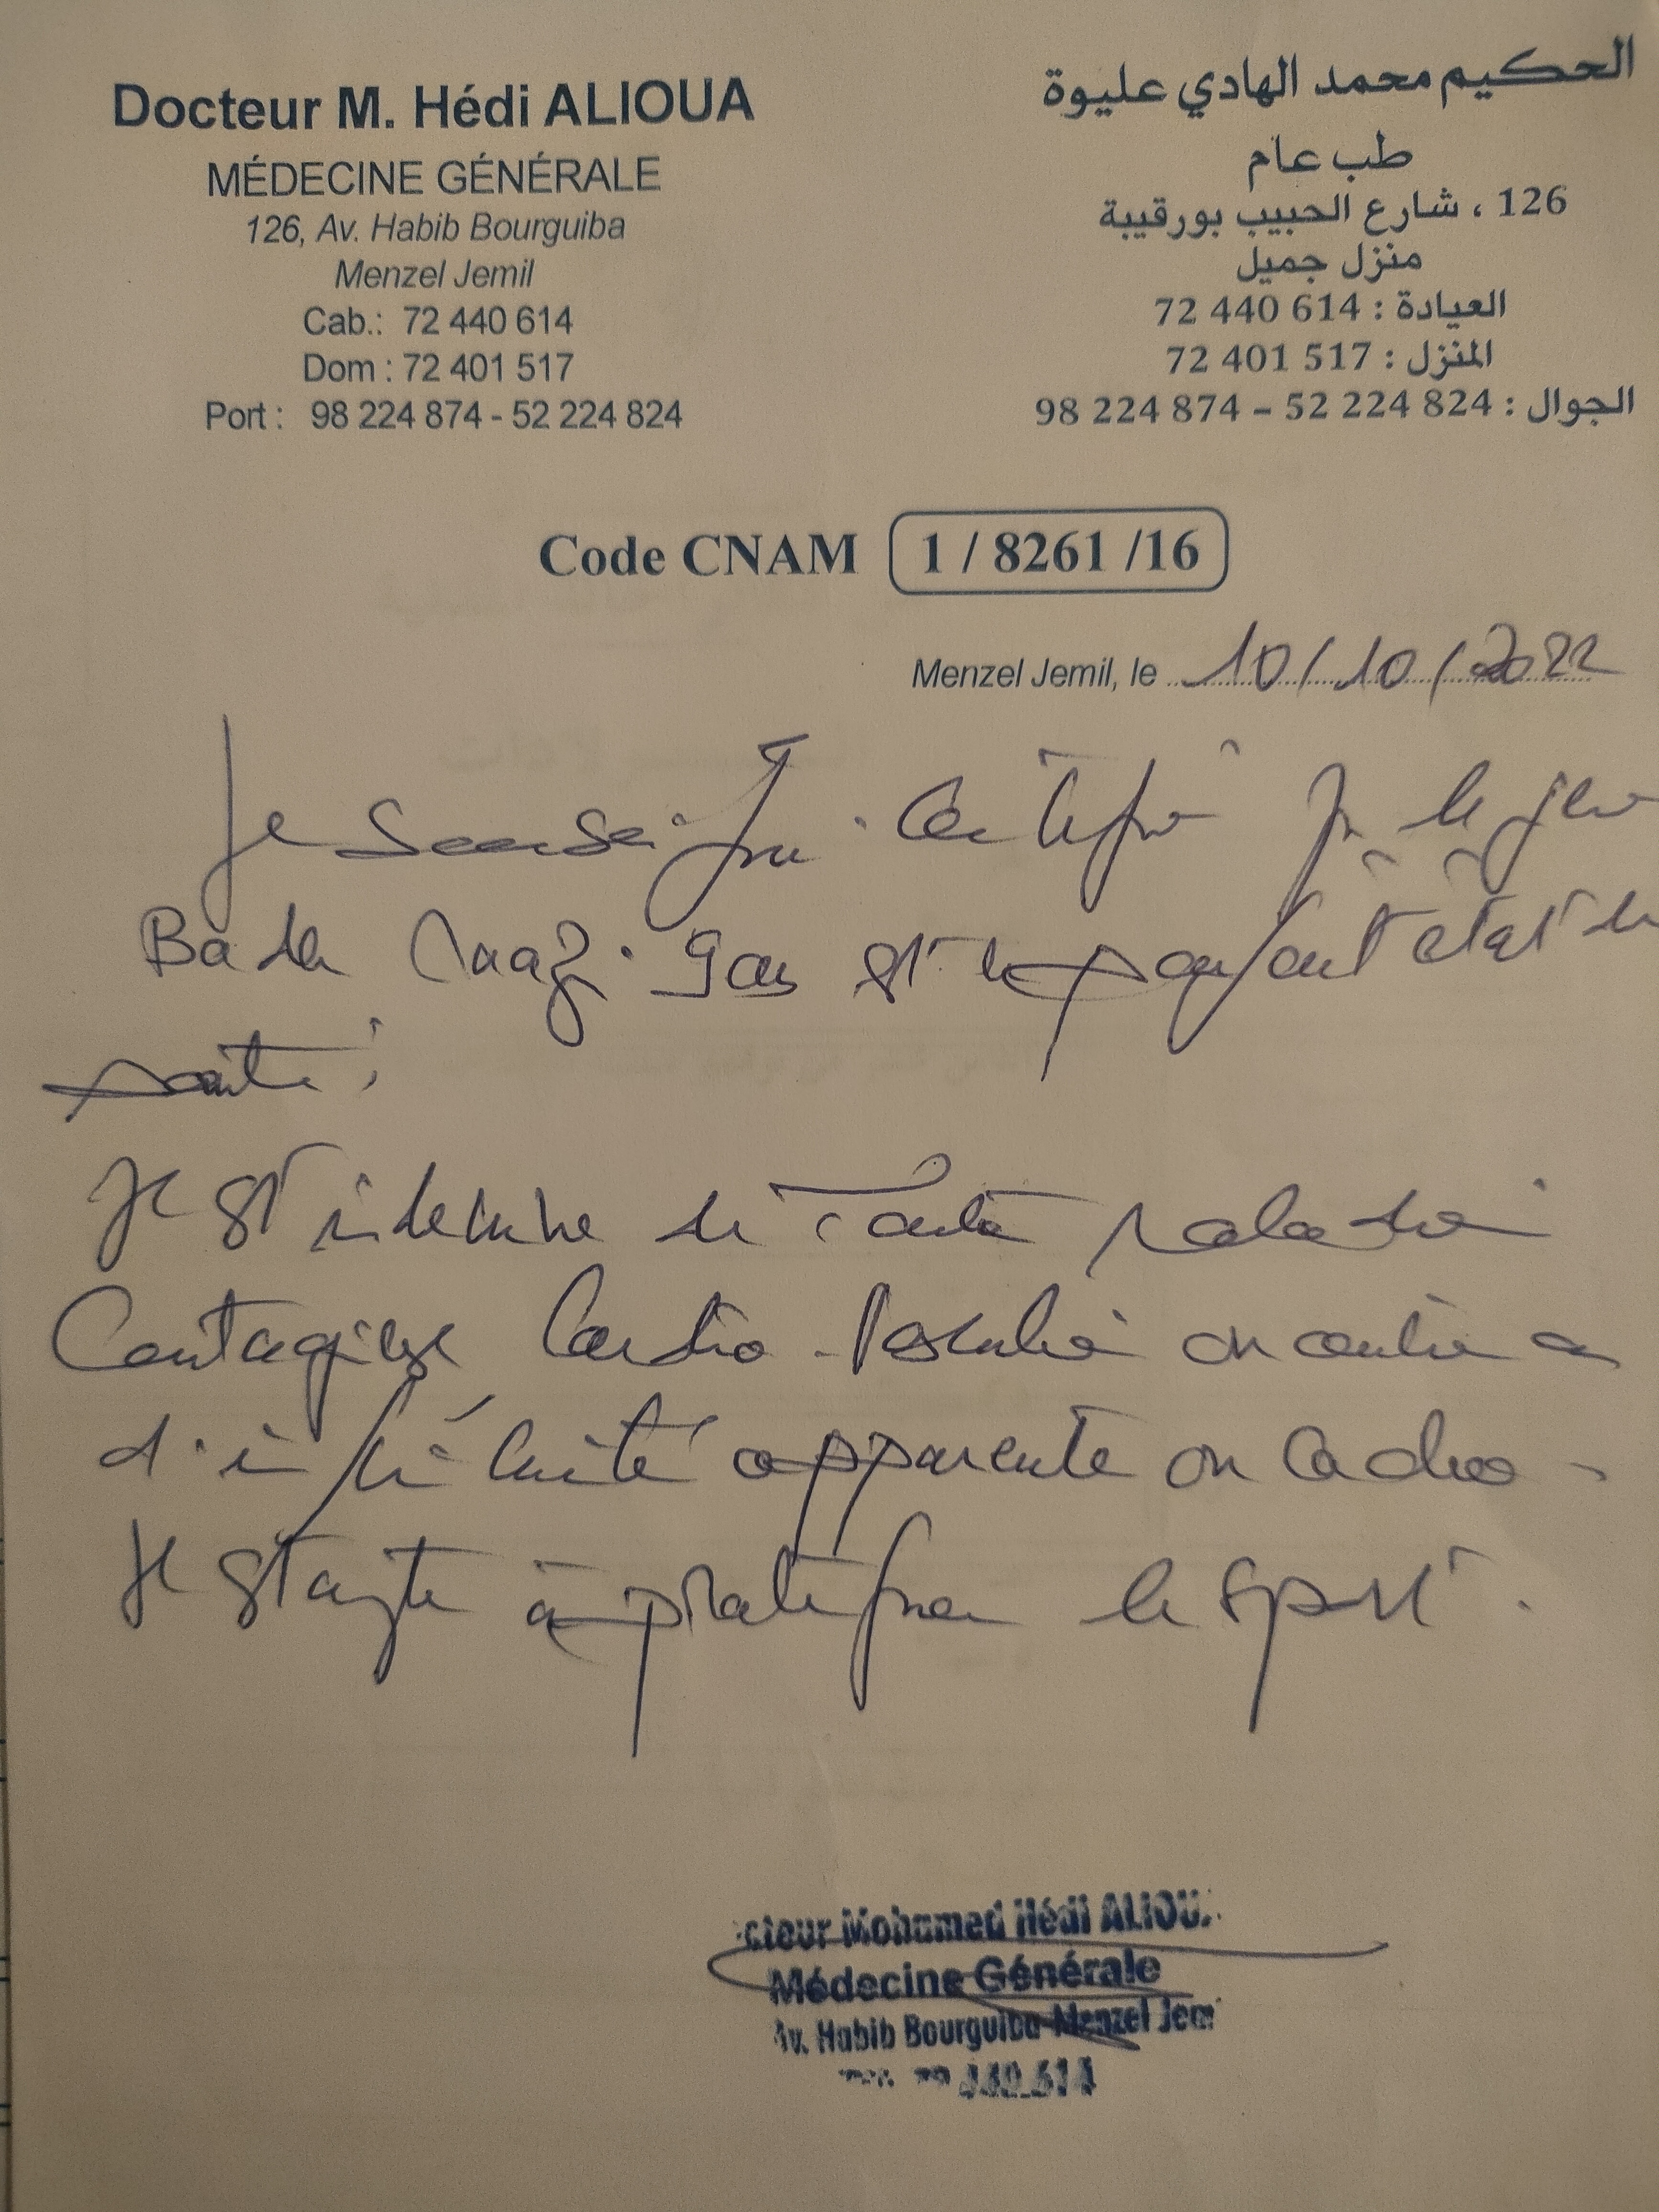 Docteur M. Hédi ALIOUA
MÉDECINE GÉNÉRALE
126, Av. Habib Bourguiba
Menzel Jemil
Cab.: 72 440 614
Dom : 72 401 517
Port : 98 224 874 - 52 224 824
الحكيم محمد الهادي عليوة
طب عام
126 ، شارع الحبيب بورقيبة
منزل جميل
العيادة : 614 440 72
المنزل : 517 401 72
الجوال : 824 224 52 – 874 224 98
Code CNAM 1 / 8261 /16
Menzel Jemil, le 10/10/2022
Je soussigné certifie que le jeune
Bader 9 ans est en parfait état de
santé ;
Il est indemne de toute maladie
Contagieuse Cardio-Vasculaire ou
d'infirmité apparente ou cachée.
Il est apte à pratiquer le sport.
cteur Mohamed Hédi ALIOU
Médecine Générale
Av. Habib Bourguiba Menzel Jem
440.614